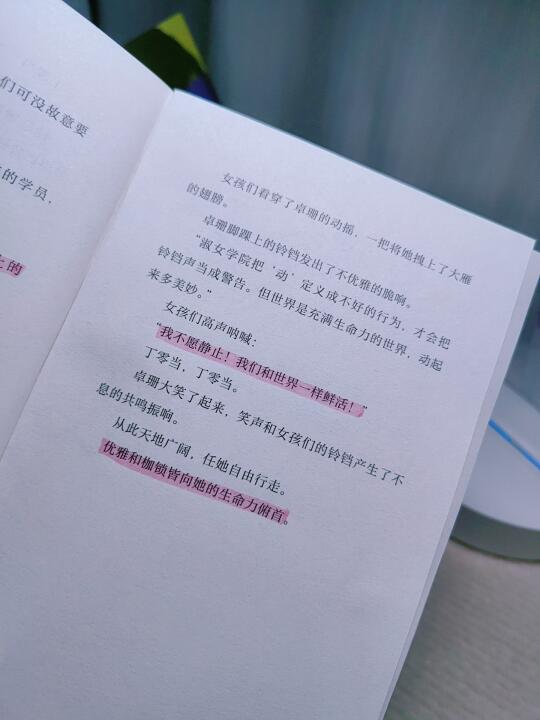 们可没故意要
的学员，
上的
女孩们看穿了卓珊的动摇，一把将她拽上了大雁
的翅膀。
卓珊脚踝上的铃铛发出了不优雅的脆响。
“淑女学院把‘动’定义成不好的行为，才会把
铃铛声当成警告。但世界是充满生命力的世界，动起
来多美妙。”
女孩们高声呐喊：
“我不愿静止！我们和世界一样鲜活！”
丁零当，丁零当。
卓珊大笑了起来，笑声和女孩们的铃铛产生了不
息的共鸣振响。
从此天地广阔，任她自由行走。
优雅和枷锁皆向她的生命力俯首。